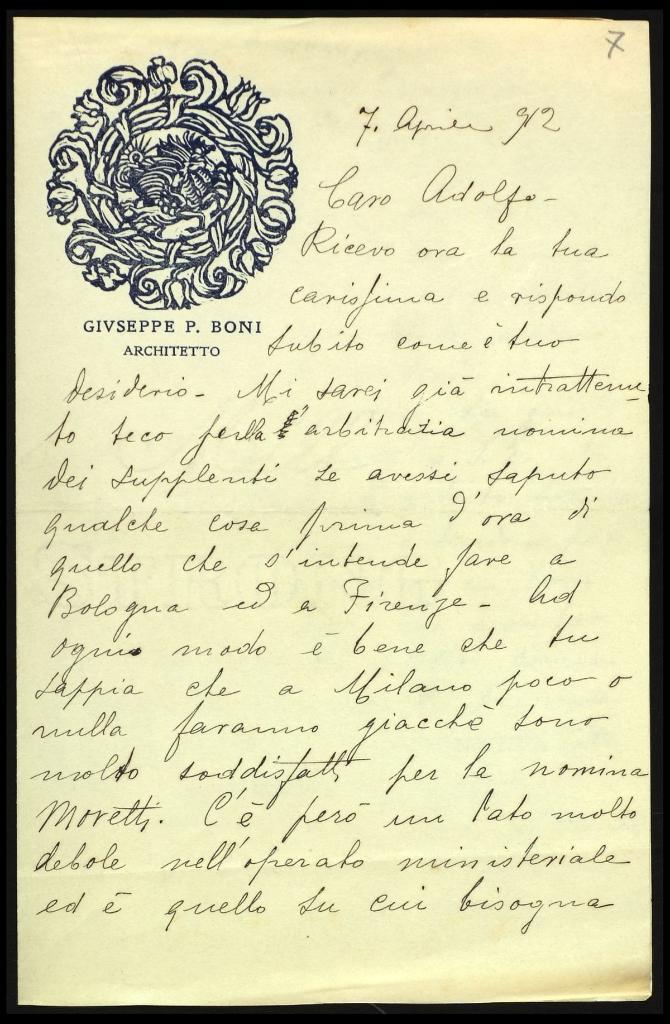 7
7. Aprile 912
Caro Adolfo -
Ricevo ora la tua
carissima e rispondo
GIVSEPPE P. BONI
ARCHITETTO
subito come è tuo
desiderio - Mi sarei già intrattenu-
to teco per la arbitraria nomina
dei supplenti se avessi saputo
qualche cosa prima d'ora di
quello che s'intende fare a
Bologna ed a Firenze - Ad
ogni modo è bene che tu
sappia che a Milano poco o
nulla faranno giacchè sono
molto soddisfatti per la nomina
Moretti. C'è però un lato molto
debole nell'operato ministeriale
ed è quello su cui bisogna